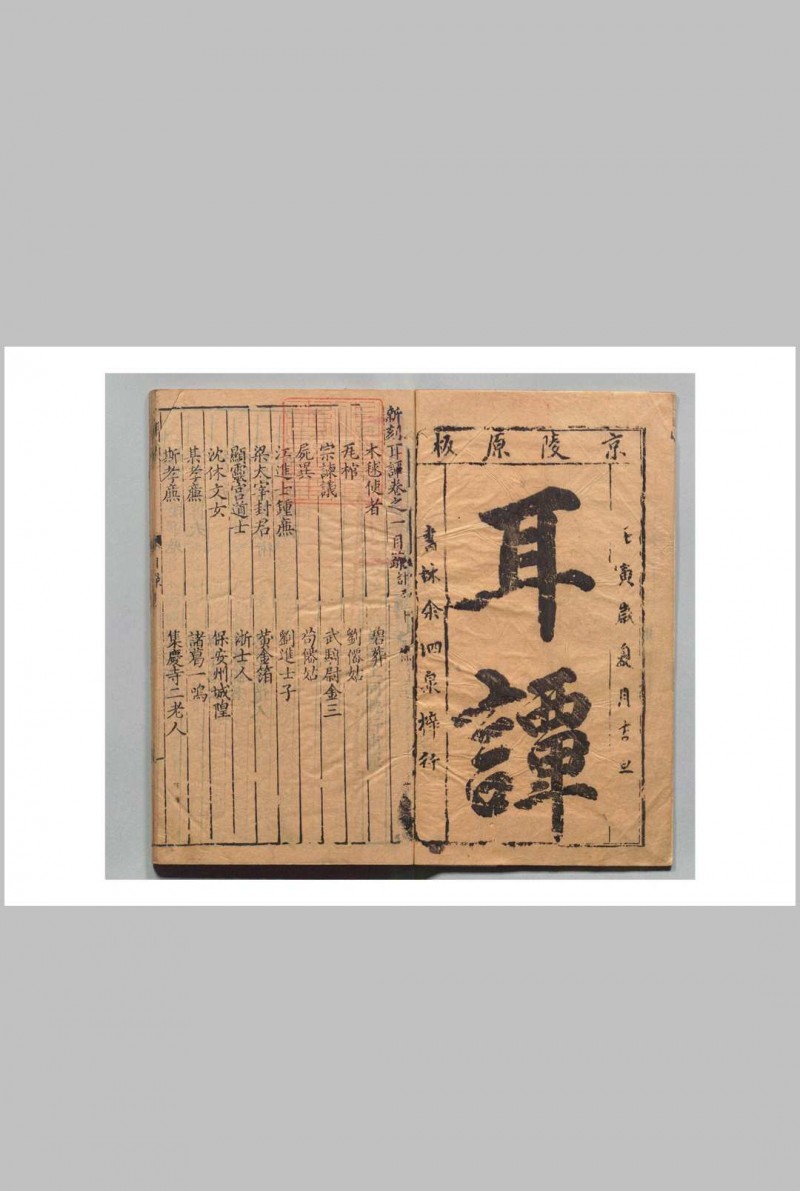 京陵原板
壬寅歲夏月吉旦
耳譚
書林余泗泉梓行
新刻耳譚卷之一目錄
木毬使者
碧葬
瓦棺
劉僊姑
宗諫議
武騎尉金三
屍異
荀僊姑
江進士鍾廡
劉進士子
梁太宰封君
黃金箔
顯靈宮道士
浙士人
沈休文女
保安州城隍
某孝廡
諸葛一鳴
斯孝廡
集慶寺二老人